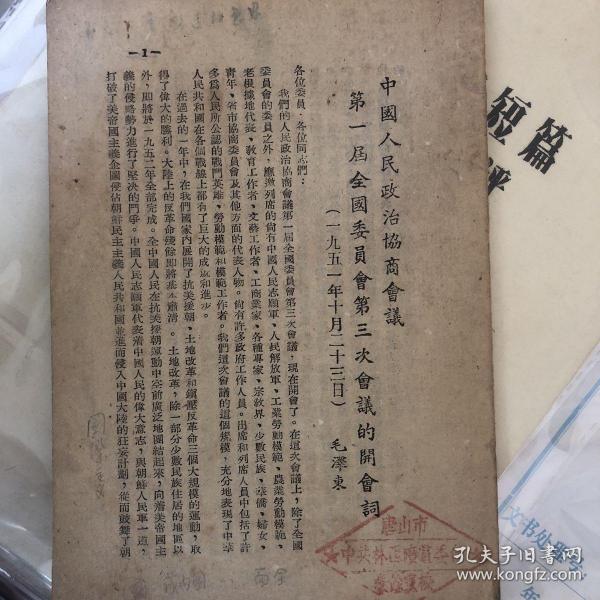 中國人民政治協商會議
第一屆全國委員會第三次會議的開會詞
（一九五一年十月二十三日）
毛澤東
各位委員、各位同志們：
我們的人民政治協商會議第一屆全國委員會第三次會議，現在開會了。在這次會議上，除了全國
委員會的委員之外，應邀列席的尙有中國人民志願軍、人民解放軍、工業勞動模範、農業勞動模範、
老根據地代表、教育工作者、文藝工作者、工商業家、各種專家、宗敎界、少數民族、華僑、婦女、
青年、省市協商委員會及其他方面的代表人物。尙有許多政府工作人員。出席和列席人員中包括了許
多爲人民所公認的戰鬥英雄、勞動模範和模範工作者。我們這次會議的這個規模，充分地表現了中華
人民共和國在各個戰線上都有了巨大的成就和進步。
在過去的一年中，在我們國家內展開了抗美援朝、土地改革和鎭壓反革命三個大規模的運動，取
得了偉大的勝利。大陸上的反革命殘餘卽將基本肅清。土地改革，除一部分少數民族住居的地區以
外，卽將於一九五二年全部完成。全中國人民在抗美援朝運動中空前廣泛地團結起來，向着美帝國主
義的侵略勢力進行了堅决的鬥爭。中國人民志願軍代表着中國人民的偉大意志，與朝鮮人民軍一道，
打破了美帝國主義企圖侵佔朝鮮民主主義人民共和國並進而侵入中國大陸的狂妄計劃，從而鼓舞了朝
—1—
唐山市
短篇
文书处
年
孔夫子旧书网
www.kongfz.com